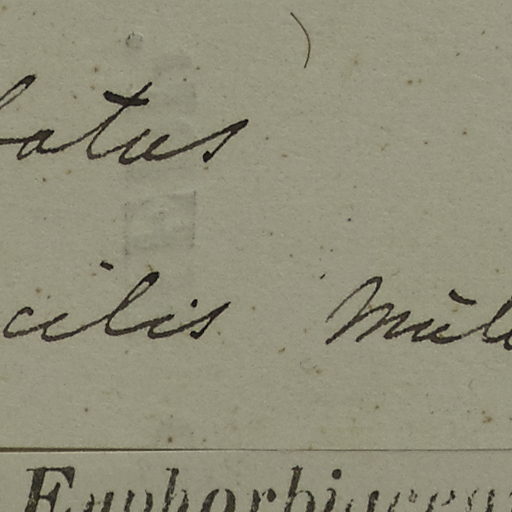 batus
cilis Mül
Euphorbiaceae